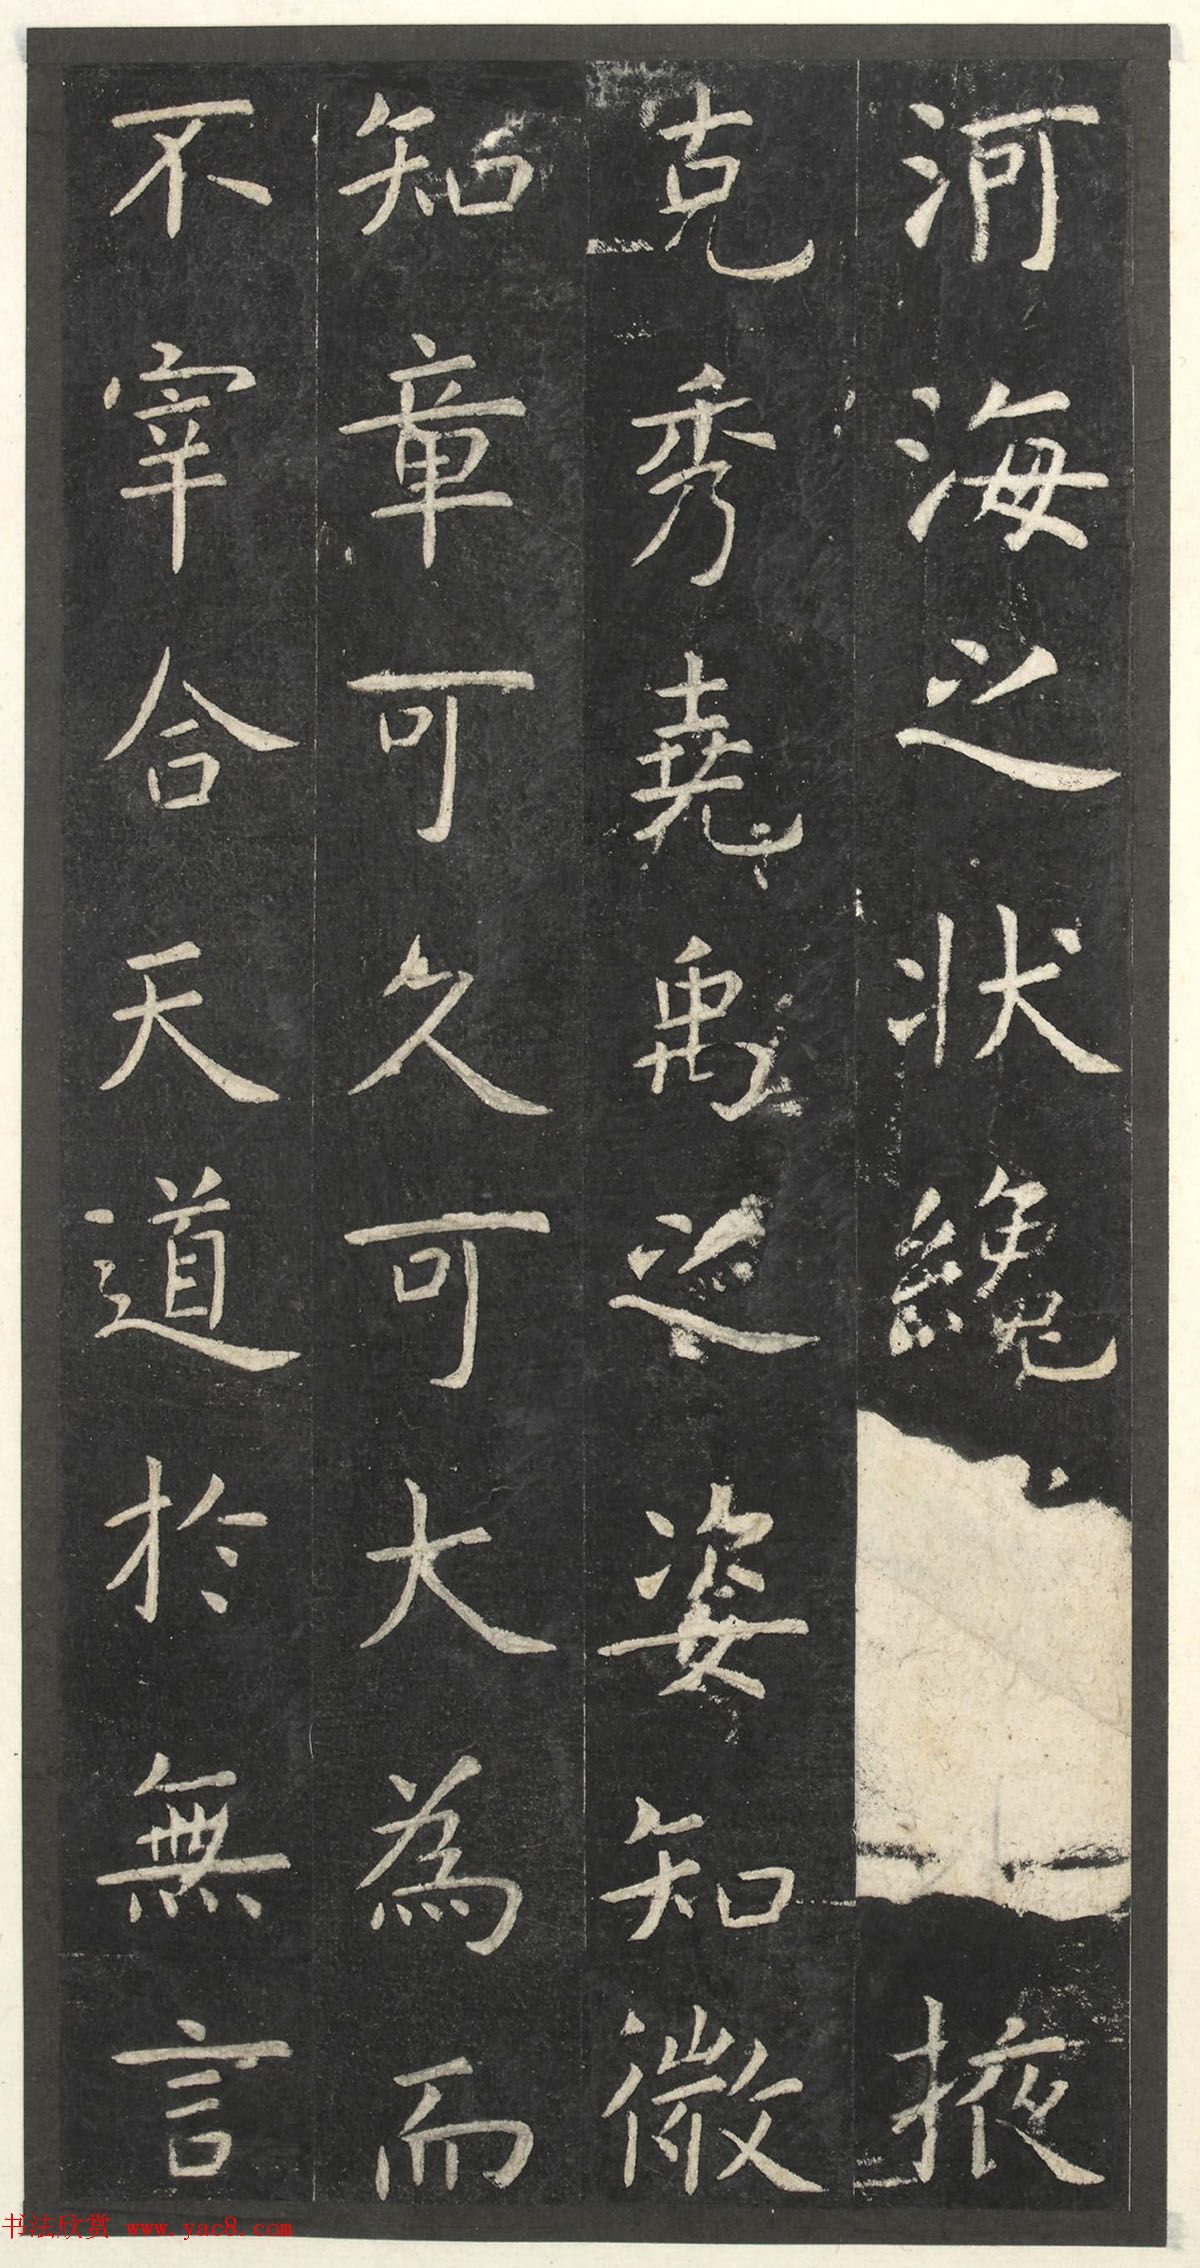 河海之狀纔掖
克秀堯禹之姿知微
知章可久可大為而
不宰合天道於無言
书法欣赏 www.yac8.com